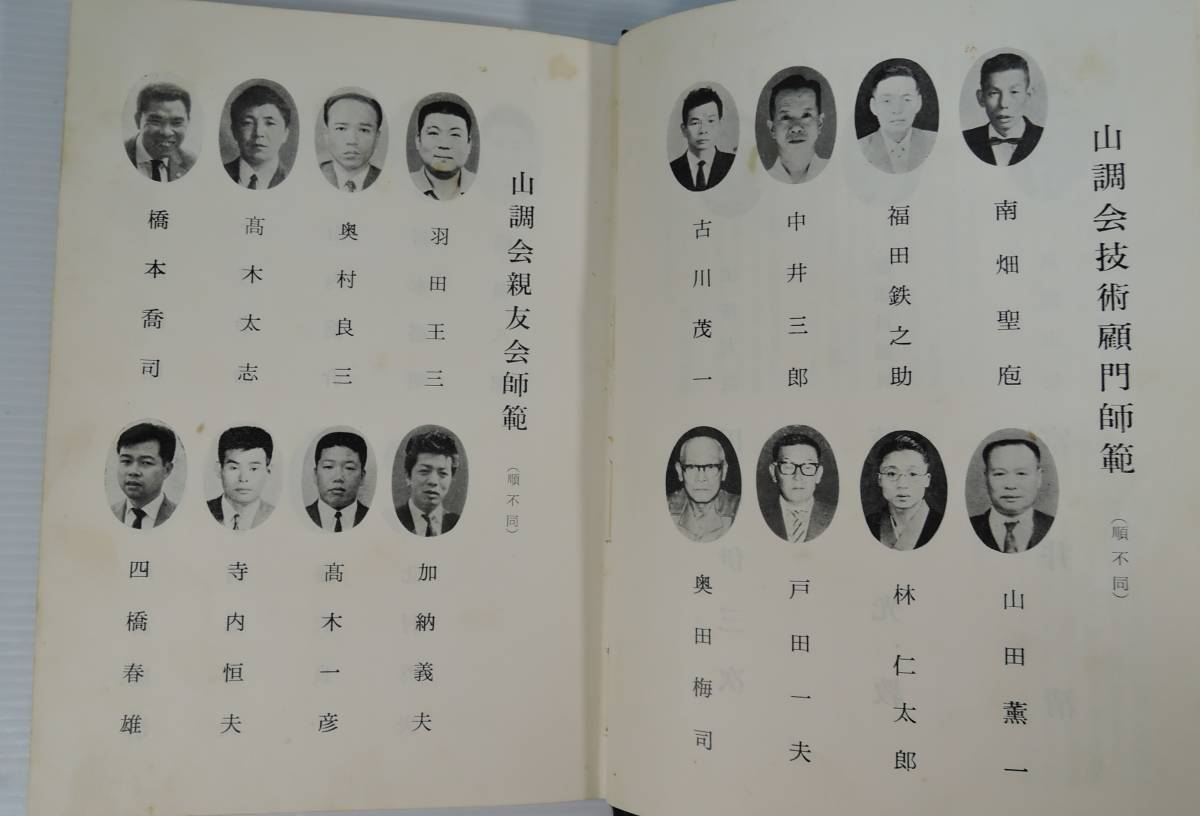 山調会技術顧門師範
（順不同）
南畑聖庖
福田鉄之助
中井三郎
古川茂一
山田薫一
林仁太郎
戸田一夫
奥田梅司
山調会親友会師範
（順不同）
羽田王三
奥村良三
髙木太志
橋本喬司
加納義夫
髙木一彦
寺内恒夫
四橋春雄